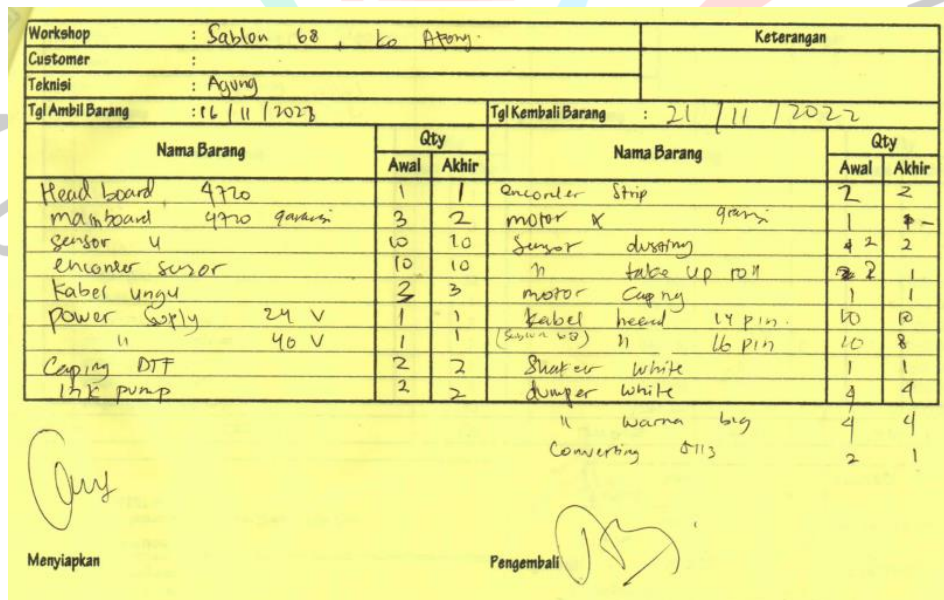 Workshop : Sablon 68, Ko Atong. Keterangan
Customer :
Teknisi : Agung
Tgl Ambil Barang : 16 / 11 / 2022 Tgl Kembali Barang : 21 / 11 / 2022
Nama Barang Qty Nama Barang Qty
Awal Akhir Awal Akhir
Head board 4720 1 1 enconder Strip 2 2
mainboard 4720 garansi 3 2 motor x garansi 1 -
sensor u 10 10 Sensor dusting 2 2
enconder sensor 10 10 " take up roll 2 1
Kabel ungu 3 3 motor Caping 1 1
Power Suply 24 V 1 1 Kabel head 14 pin. 10 10
" 40 V 1 1 (Sablon 68) " 16 pin 10 8
Caping DTF 2 2 Shaker white 1 1
Ink pump 2 2 dumper white 4 4
" warna big 4 4
Converting 5113 2 1
Menyiapkan Pengembali